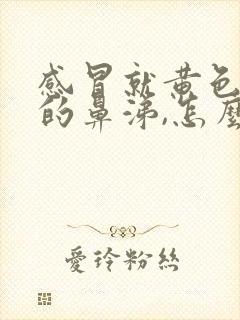 感冒就黄色
的鼻涕,怎麼
爱玲粉丝